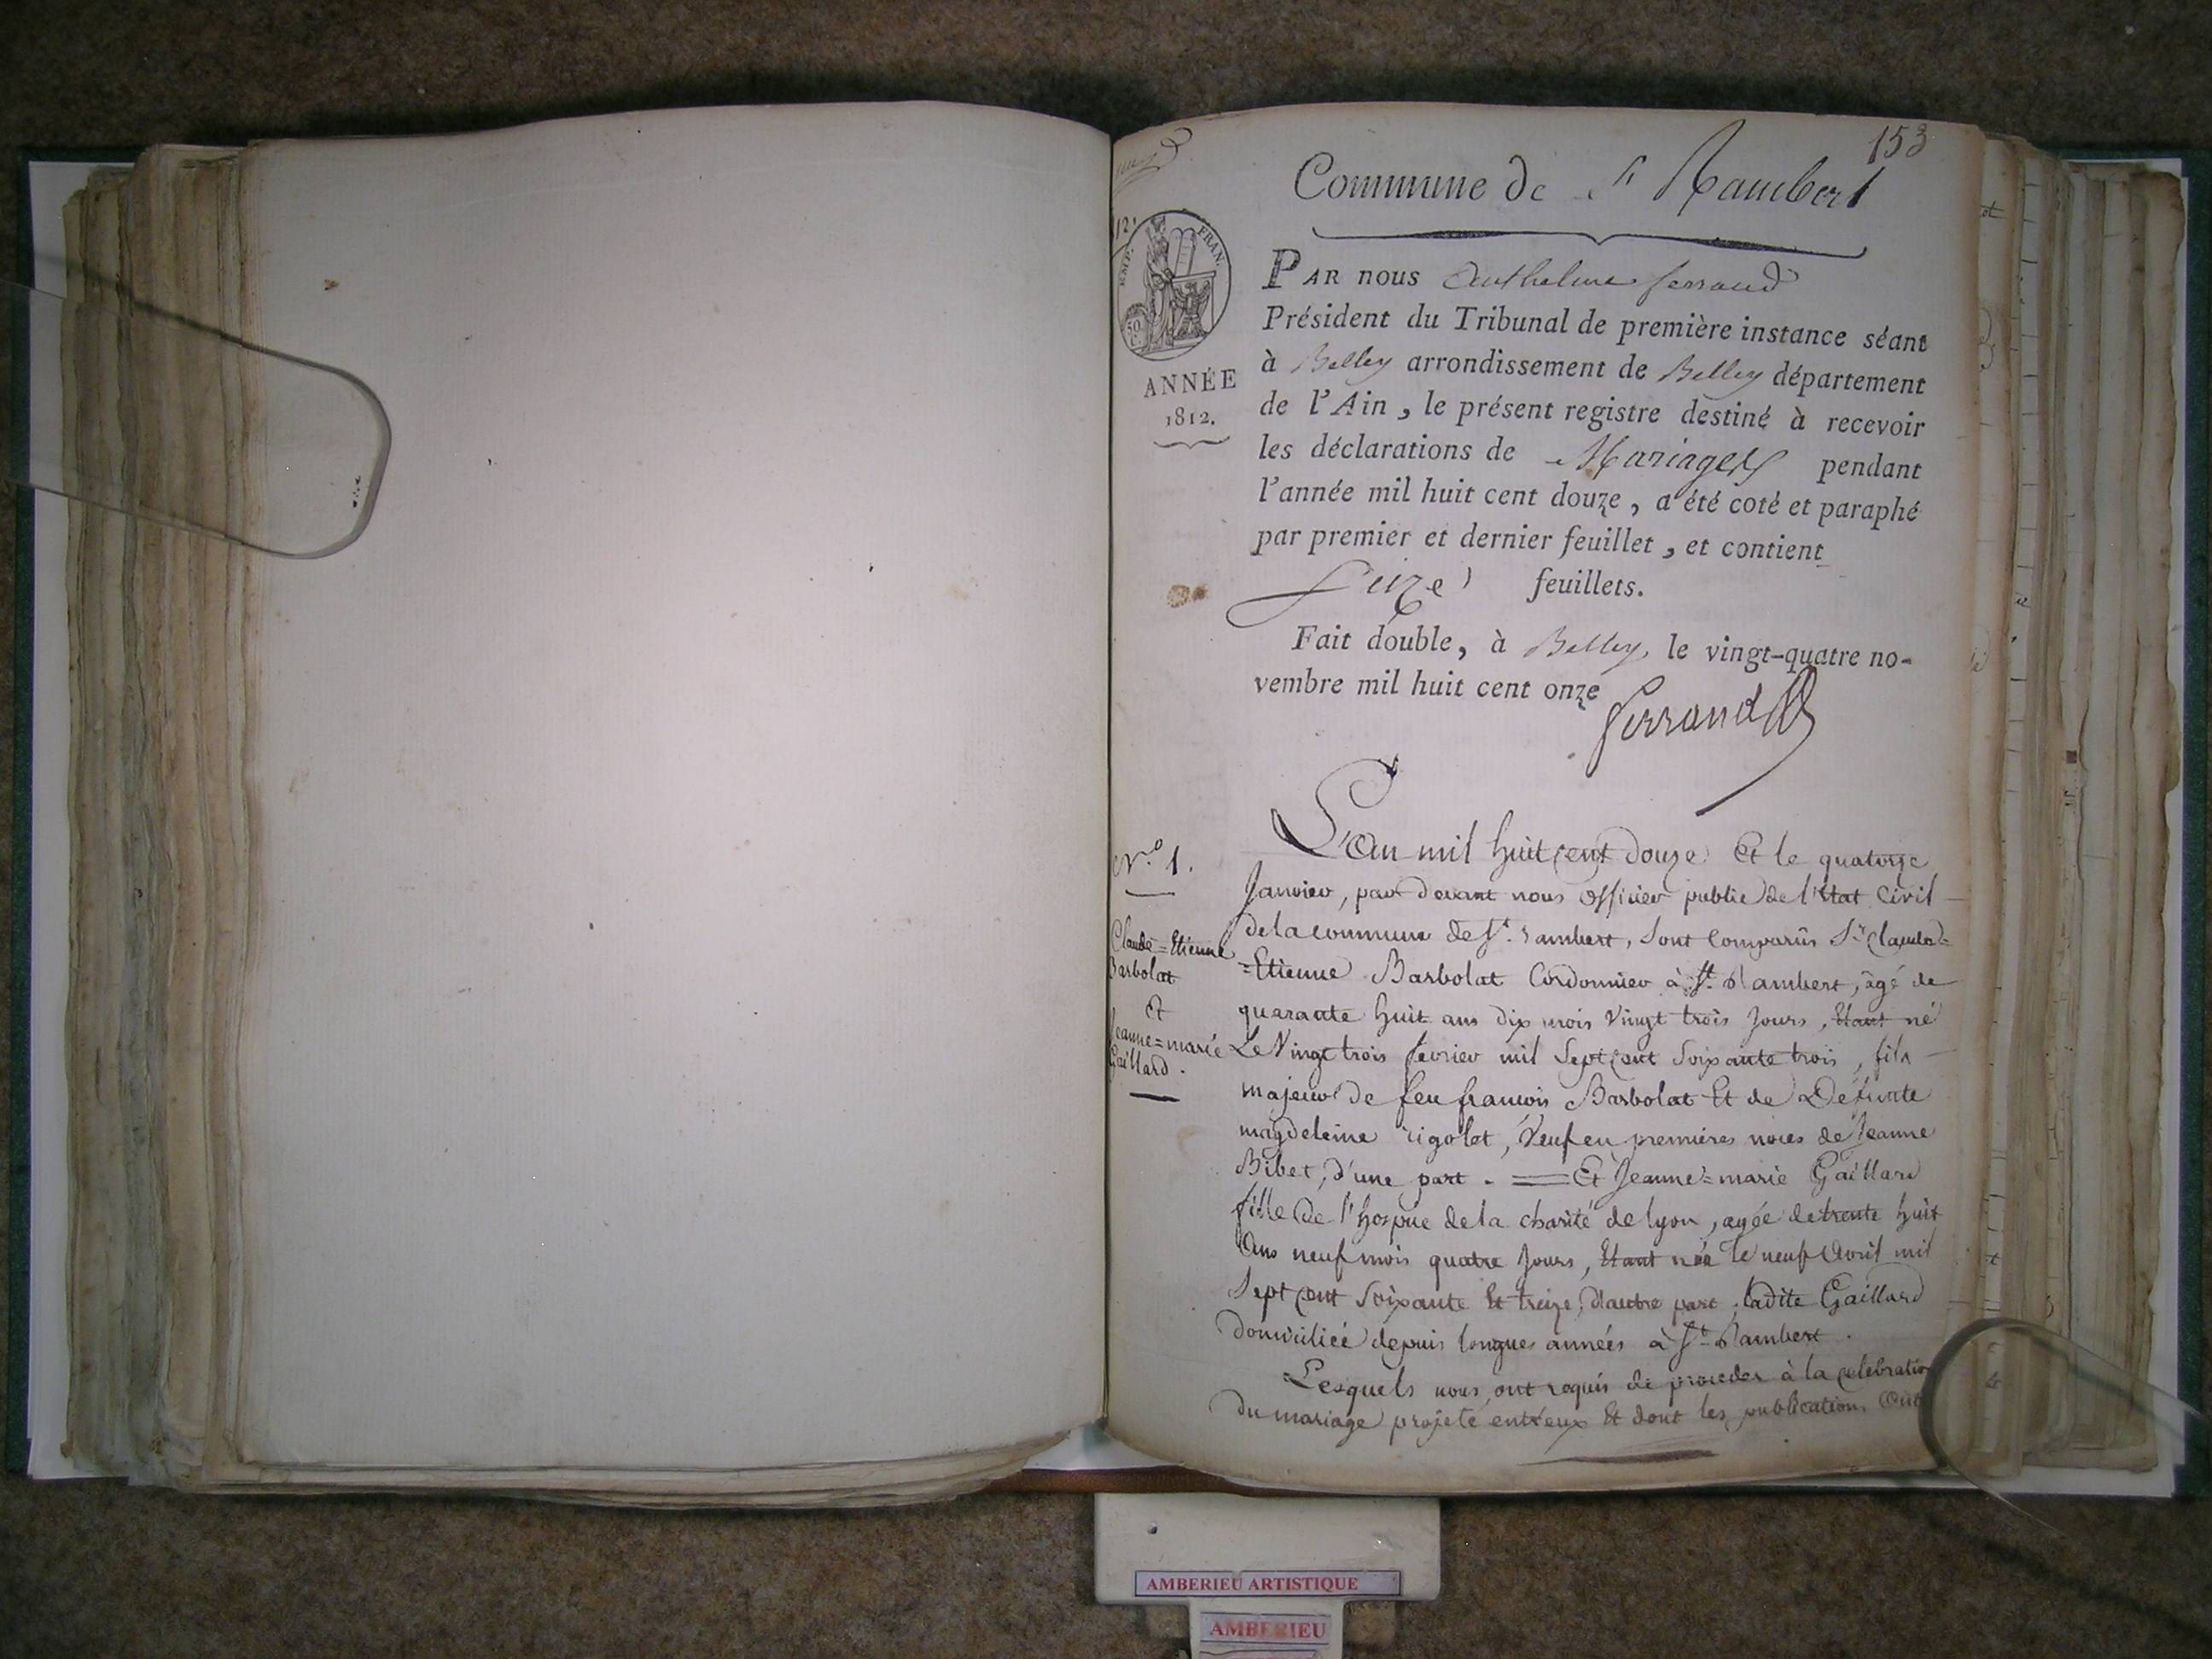 153
Commune de St Rambert
EMP. FRAN.
50 C.
ANNÉE
1812.
PAR nous Anthelme ferrand
Président du Tribunal de première instance séant
à Belley arrondissement de Belley département
de l'Ain, le présent registre destiné à recevoir
les déclarations de Mariages pendant
l'année mil huit cent douze, a été coté et paraphé
par premier et dernier feuillet, et contient
Seize feuillets.
Fait double, à Belley, le vingt-quatre no-
vembre mil huit cent onze
ferrand
N.º 1.
Claude=Etienne
Barbolat
Et
Jeanne=marie
Gaillard.
L'An mil huit cent douze Et le quatorze
Janvier, par devant nous Officier public de l'Etat Civil
de la commune de St. rambert, sont comparûs Sr. Claude=
=Etienne Barbolat Cordonnier à St. Rambert, âgé de
quarante huit ans dix mois vingt trois Jours, Etant né
Le Vingt trois fevrier mil Sept cent Soixante trois, fils
majeur de feu francois Barbolat Et de Défunte
magdeleine rigolet, Veuf en premieres noces de Jeanne
Bibet, d'une part. = Et Jeanne=marie Gaillard
fille de l'hospice de la charité de lyon, agée de trente huit
Ans neuf mois quatre Jours, Etant née le neuf Avril mil
Sept cent Soixante Et treize, d'autre part, ladite Gaillard
domiciliée depuis longues années à St. Rambert.
Lesquels nous ont requis de proceder à la celebration
du mariage projeté entr'eux Et dont les publications Ont
AMBERIEU ARTISTIQUE
AMBERIEU